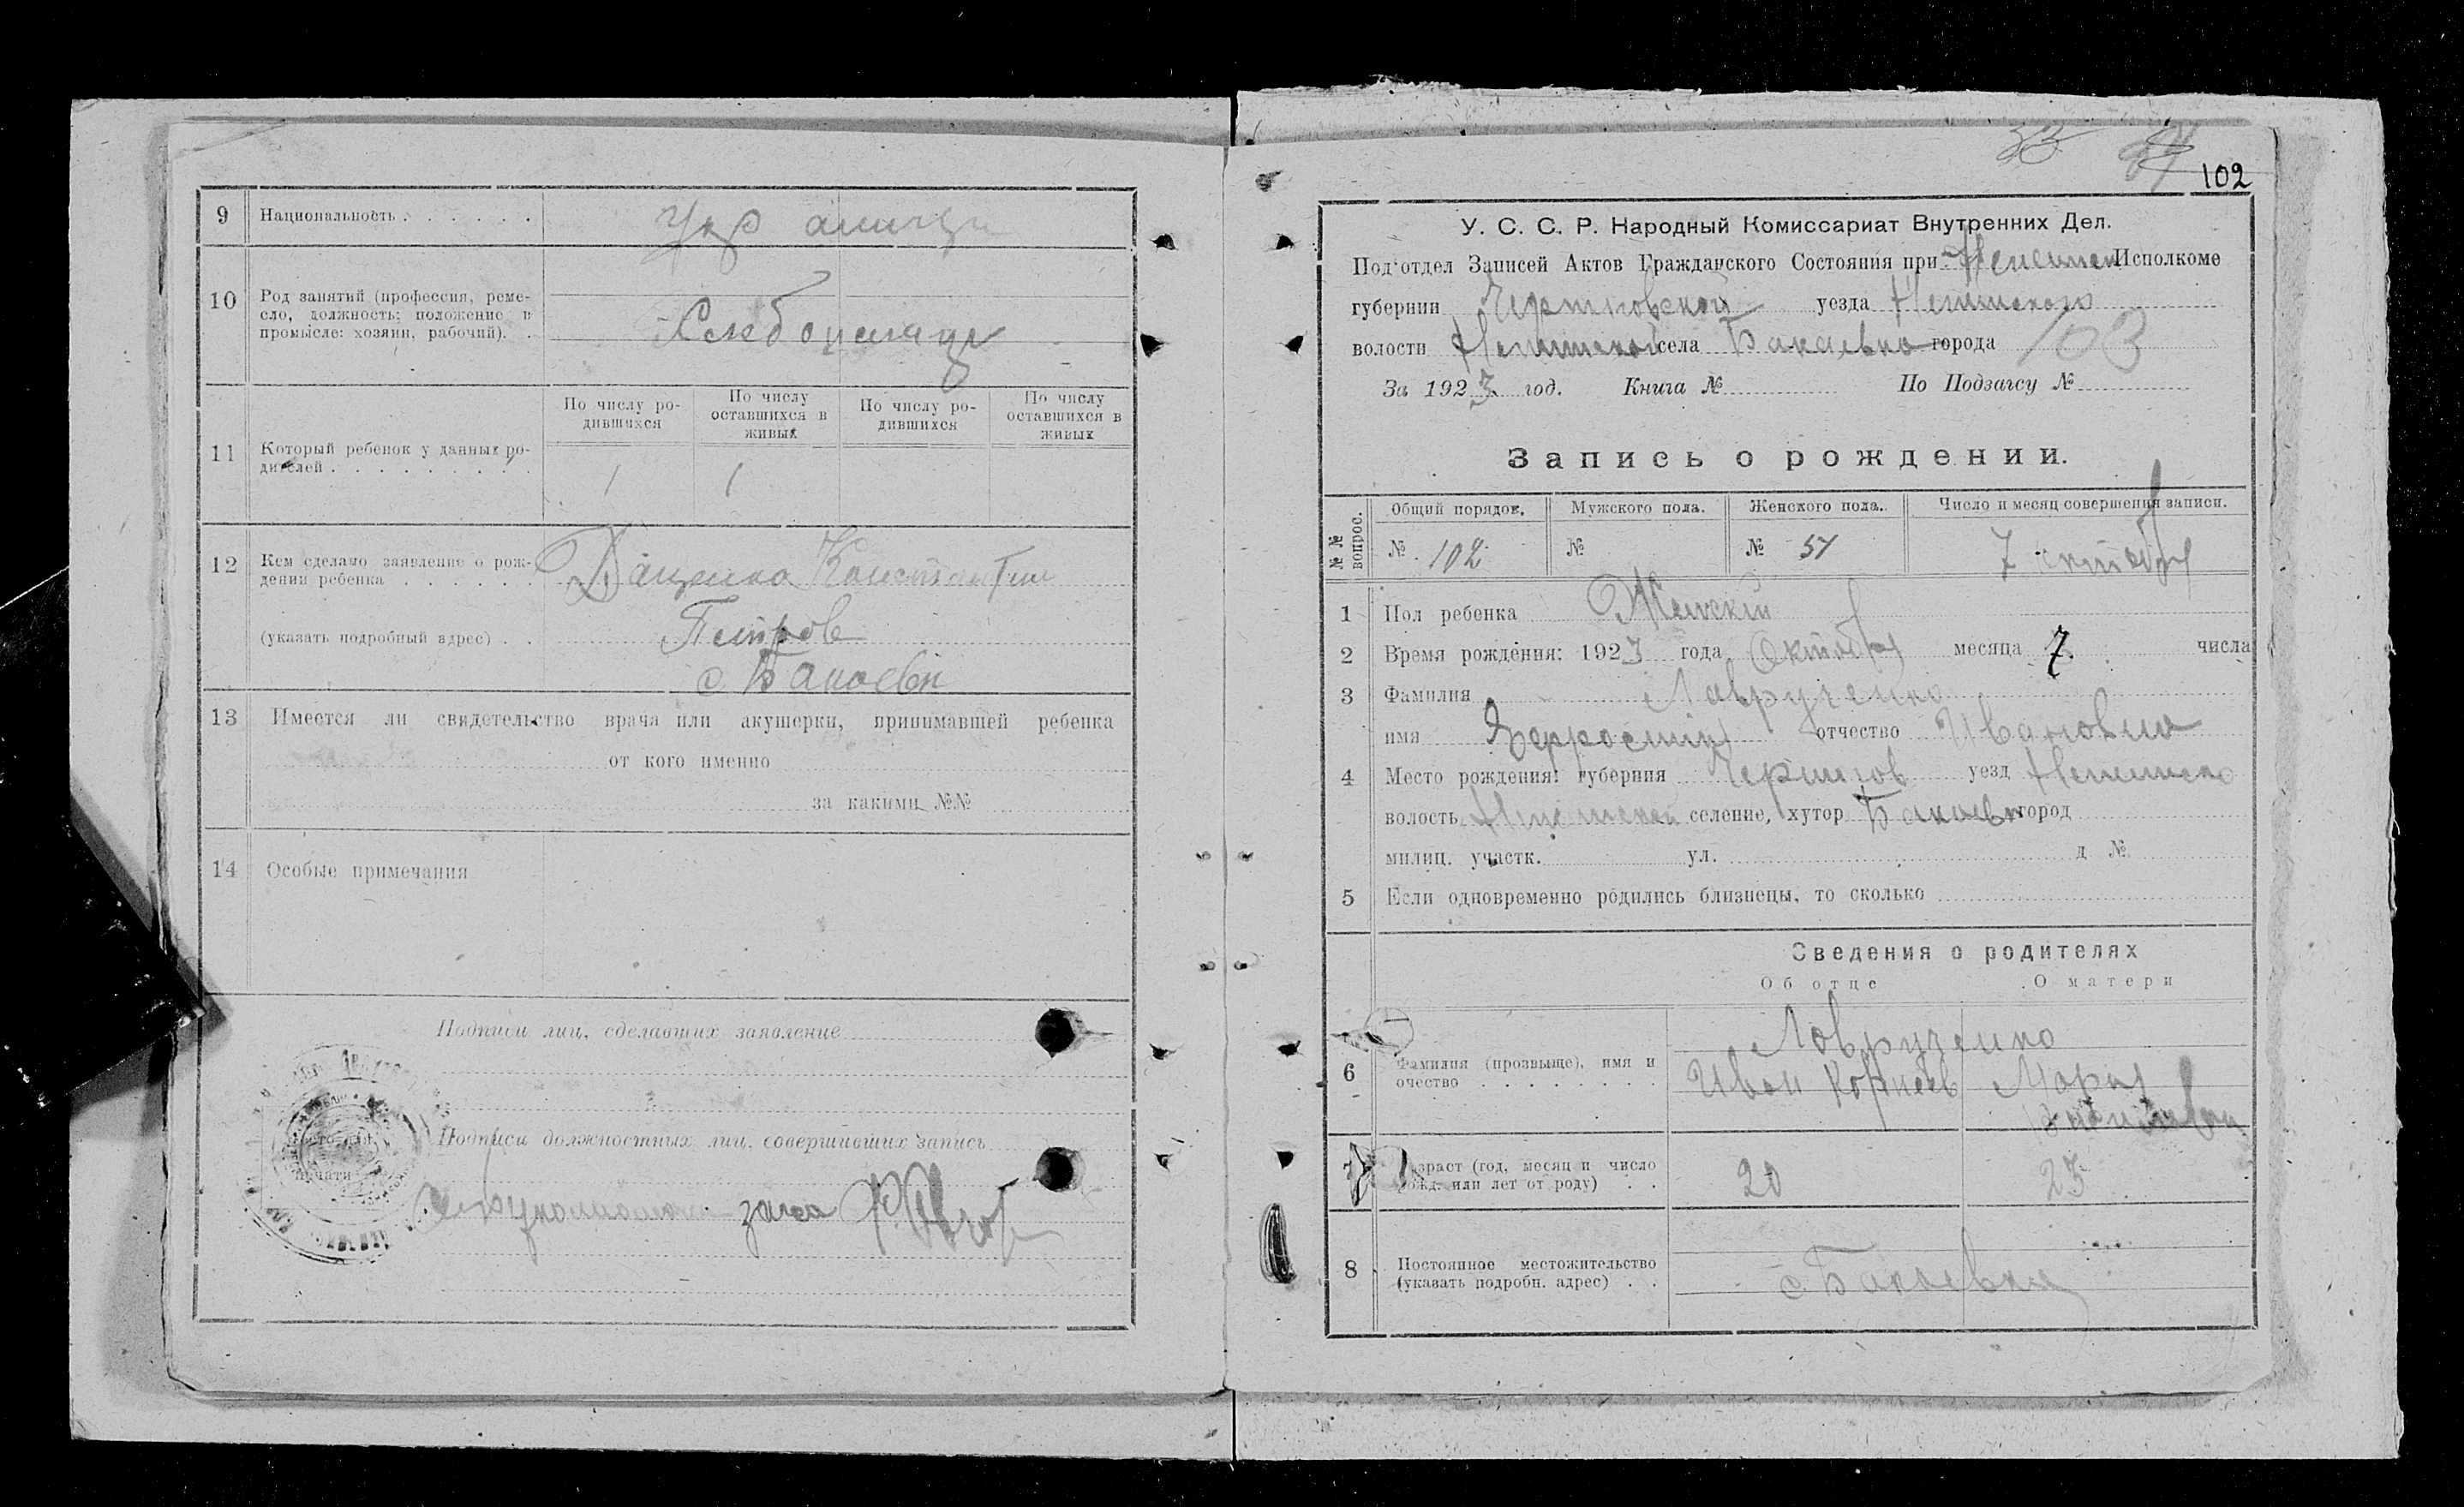 9 Национальность . . . . . . Укр
10 Род занятий (профессия, реме-
сло, должность; положение в
промысле: хозяин, рабочий). .
По числу ро-
дившихся
По числу
оставшихся в
живых
По числу ро-
дившихся
По числу
оставшихся в
живых
11 Который ребенок у данных ро-
дителей . . . . . . . . . 1 1
12 Кем сделано заявление о рож-
дении ребенка . . . . . . Даценко Константин
(указать подробный адрес) . . Петров
с. Бакаевки
13 Имеется ли свидетельство врача или акушерки, принимавшей ребенка
от кого именно
за какими №№
14 Особые примечания
Подписи лиц, сделавших заявление
Подписи должностных лиц, совершивших запись
печати
загса
102
У. С. С. Р. Народный Комиссариат Внутренних Дел.
Под'отдел Записей Актов Гражданского Состояния при Исполкоме
губернии Черниговской уезда Нежинского
волости Нежинской села Бакаевка города 103
За 1923 год. Книга № По Подзагсу №
Запись о рождении.
№ № вопрос.
Общий порядок. Мужского пола. Женского пола. Число и месяц совершения записи.
№ 102 № № 51 7 октября
1 Пол ребенка Женский
2 Время рождения: 1923 года Октября месяца 7. числа
3 Фамилия Лаврученко
имя отчество Ивановна
4 Место рождения: губерния Чернигов уезд Неженско
волость селение, хутор Бакаевк город
милиц. участк. ул. д №
5 Если одновременно родились близнецы, то сколько
Сведения о родителях
Об отце О матери
Лаврученко
6 Фамилия (прозвыще), имя и
очество . . . . . . . . Иван Корнеев Мария
7 Возраст (год, месяц и число
рожд. или лет от роду) . . 20 23
8 Постоянное местожительство
(указать подробн. адрес) . . с. Бакаевка